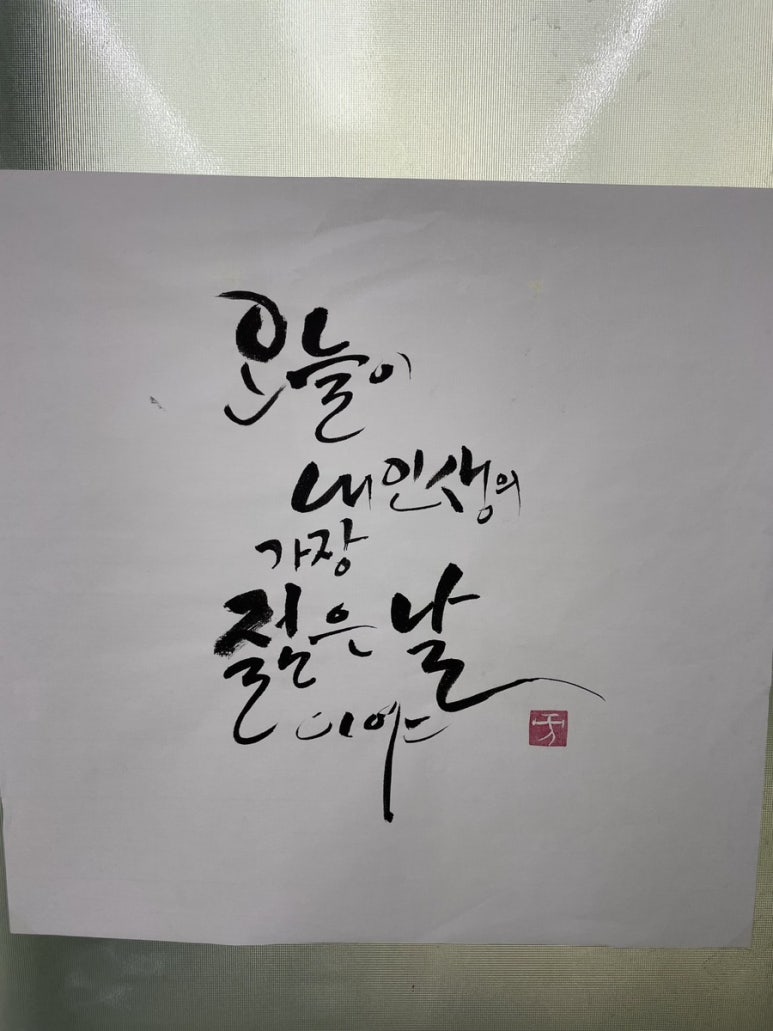 오늘이
내 인생의
가장
젊은 날
이야